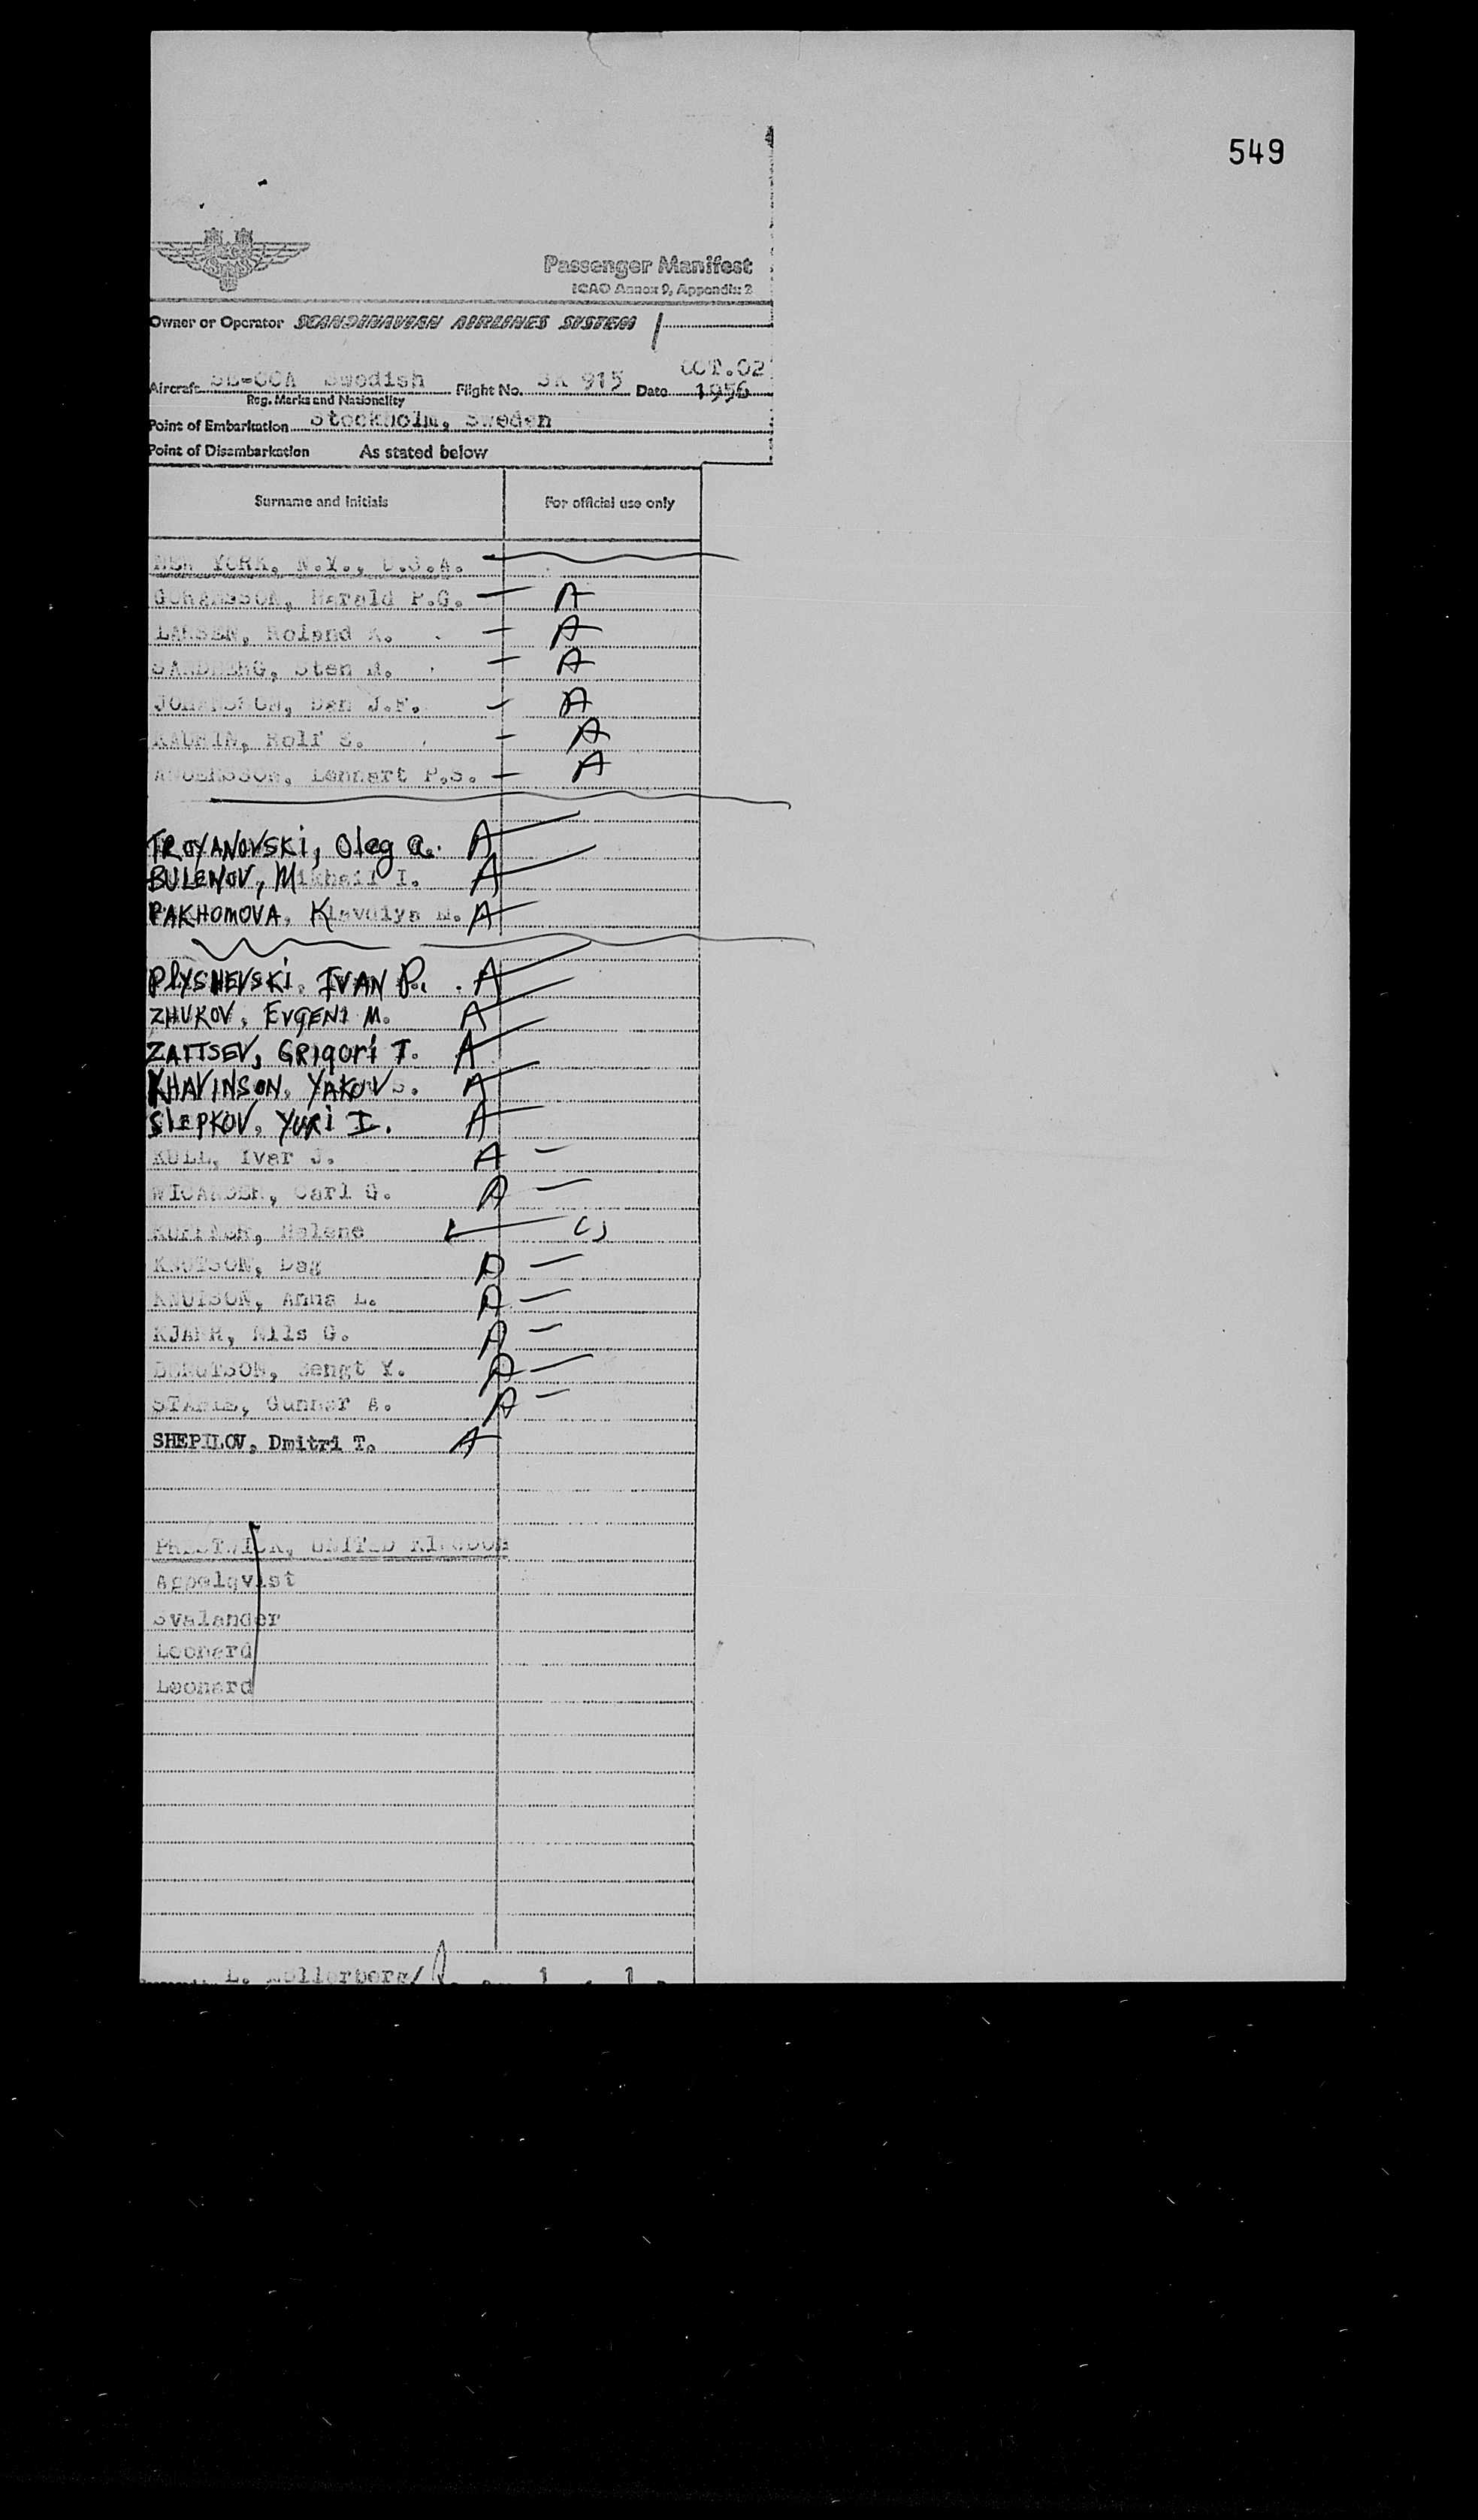 549
Passenger Manifest
ICAO Annex 9, Appendix 2
Owner or Operator SCANDINAVIAN AIRLINES SYSTEM
OCT.02
Aircraft SE-CCA Swedish Flight No. SK 915 Date 1956
Reg. Marks and Nationality
Point of Embarkation Stockholm, Sweden
Point of Disembarkation As stated below
Surname and Initials For official use only
NEW YORK, N.Y., U.S.A.
GORANSSON, Harald P.G. A
LARSEN, Roland K. A
SANDBERG, Sten M. A
JOHANSSON, Dan J.F. A
Rolf S. A
ANDERSSON, Lennart P.S. A
TROYANOVSKI, Oleg A. A
BULENOV, Mikhail I. A
PAKHOMOVA, Klavdiya M. A
PLYSHEVSKI, IVAN P. A
ZHUKOV, EVGENI M. A
ZAITSEV, GRIGORI T. A
KHAVINSON, YAKOV S. A
SLEPKOV, YURI I. A
KULL, Ivar J. A
WICANDER, Carl G. A
Helene
KNUTSON, Dag A
KNUTSON, Anna L. A
KJAER, Nils G. A
BENGTSON, Bengt Y. A
Gunnar A. A
SHEPILOV, Dmitri T. A
PRESTWICK, UNITED KINGDOM
Appelqvist
Svalander
Leonard
Leonard
L.